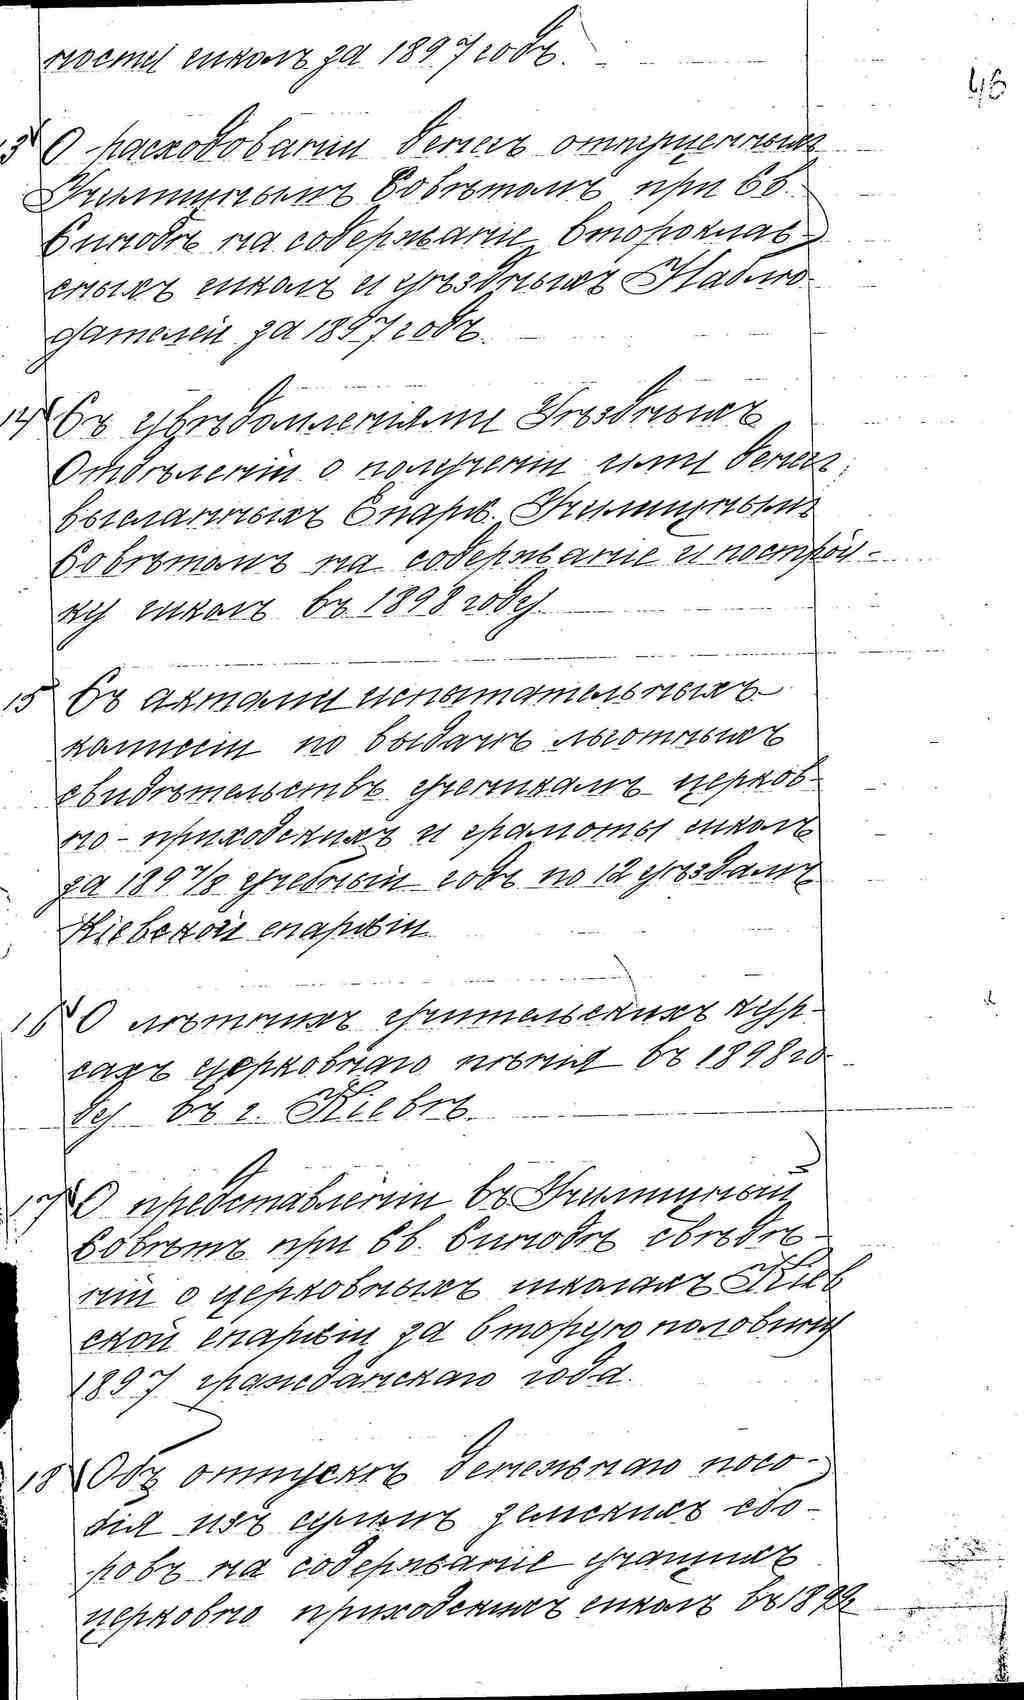 ности школъ за 1897 годъ.
46
13 О расходованіи денегъ отпущенныхъ
Училищнымъ Совѣтомъ при Св.
Синодѣ на содержаніе второклас-
сныхъ школъ и уѣздныхъ Наблю-
дателей за 1897 годъ.
14 Съ увѣдомленіями Уѣздныхъ
Отдѣленій о полученіи ими денегъ,
высланныхъ Епарх. Училищнымъ
Совѣтомъ на содержаніе и построй-
ку школъ въ 1898 году
15 Съ актами испытательныхъ
комиссій по выдачѣ льготныхъ
свидѣтельствъ ученикамъ церков-
но-приходскихъ и грамоты школъ
за 1897/8 учебный годъ по 12 уѣздамъ
Кіевской епархіи
16 О лѣтнихъ учительскихъ кур-
сахъ церковнаго пѣнія въ 1898 го-
ду въ г. Кіевѣ.
17 О представленіи въ Училищный
Совѣтъ при Св. Синодѣ свѣдѣ-
ній о церковныхъ школахъ Кіев
ской епархіи за вторую половину
1897 гражданскаго года.
18 Объ отпускѣ денежнаго посо-
бія изъ суммъ земскихъ сбо-
ровъ на содержаніе учащихъ
церковно приходскихъ школъ въ 1899